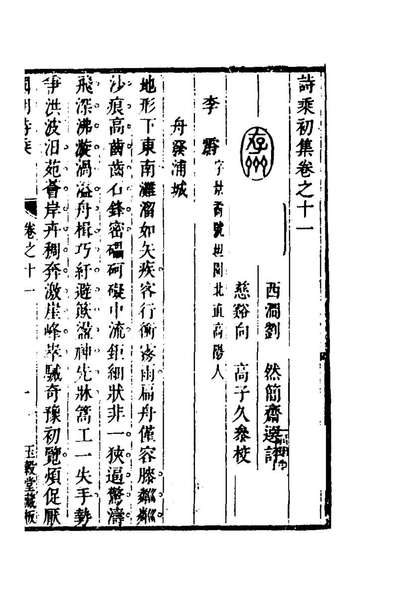 詩乘初集卷之十一
西澗劉 然簡齋選評
慈谿向 高子久叅校
李 霨 字 號坦園北直高陽人
舟發浦城
地形下東南灘溜如矢疾客行衝霧雨扁舟僅容膝齾齾
沙痕高齒齒石鋒密礓砢礙中流鉅細狀非一狹逼驚濤
飛深沸漩渦溢舟楫巧紆避篙 神先牀篙工一失手勢
爭洪波汨苑薈岸卉稠奔激崖峰崒騁奇豫初覽煩促厭
國朝詩乘
卷之十一
一
玉穀堂藏板